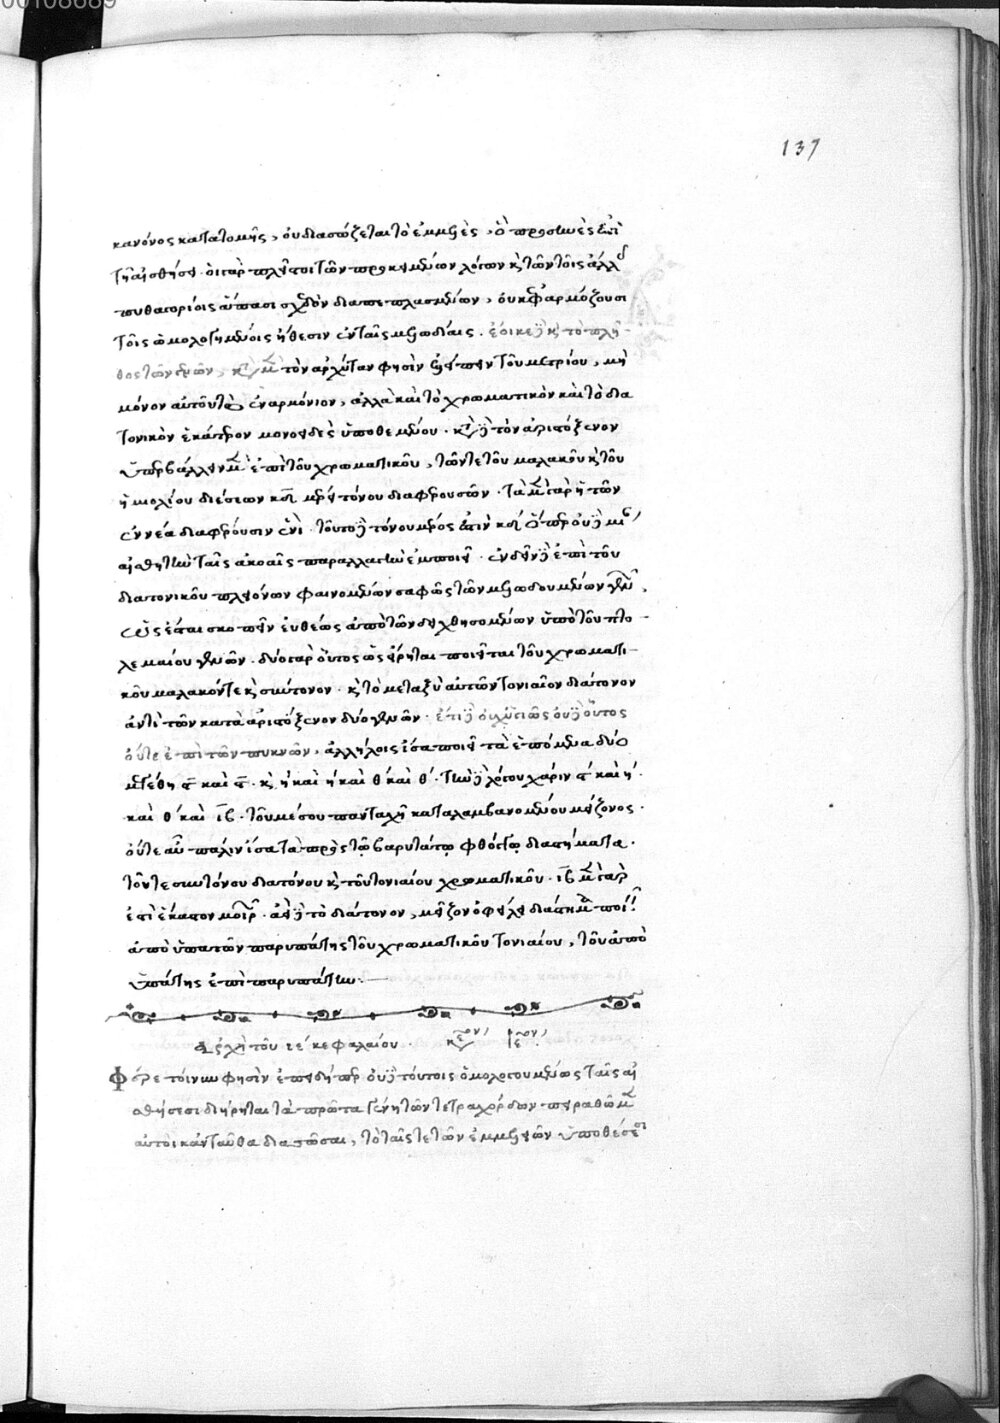 00108689
137
κανόνος κατατομῆς, οὐ διασώζεται τὸ ἐμμελὲς, ὃ προσηνὲς ἐστὶ
τῇ αἰσθήσει. οἱ γὰρ πλεῖστοι τῶν προκειμένων λόγων καὶ τῶν τοῖς ἄλλοις
πυθαγορίοις ἅπασι σχεδὸν διαπεπλασμένων, οὐκ ἐφαρμόζουσι
τοῖς ὁμολογημένοις ἤθεσιν ἐν ταῖς μελωδίαις. ἔοικε δὲ καὶ τὸ πλῆ-
θος τῶν γενῶν, κατὰ μὲν τὸν ἀρχύταν φησὶν ἐλλείπειν τοῦ μετρίου, μὴ
μόνον αὐτοῦ τὸ ἐναρμόνιον, ἀλλὰ καὶ τὸ χρωματικὸν καὶ τὸ δια
τονικὸν ἑκάτερον μονοειδὲς ὑποθεμένου. κατὰ δὲ τὸν ἀριστόξενον
ὑπερβάλλειν μὲν ἐπὶ τοῦ χρωματικοῦ, τῶν τε τοῦ μαλακοῦ καὶ τοῦ
ἡμιολίου διέσεων κδ μέρει τόνου διαφερουσῶν. τὰ μὲν γὰρ ἢ τῶν
ἐννέα διαφέρουσιν ἑνὶ. τοῦτο δὲ τόνου μέρος ἐστὶν κδ ὅπερ οὐδὲ μίαν
αἰσθητὴν ταῖς ἀκοαῖς παραλλαγὴν ἐμποιεῖ. ἐνδεῖν δὲ ἐπὶ τοῦ
διατονικοῦ πλειόνων φαινομένων σαφῶς τῶν μελωδουμένων γενῶν,
ὡς ἔσται σκοπεῖν εὐθέως ἀπὸ τῶν δειχθησομένων ὑπὸ τοῦ πτο-
λεμαίου γενῶν. δύο γὰρ οὗτος ὡς εἴρηται ποιεῖται τοῦ χρωματι-
κοῦ μαλακόν τε καὶ σύντονον. καὶ τὸ μεταξὺ αὐτῶν τονιαῖον διάτονον
ἀντὶ τῶν κατὰ ἀριστόξενον δύο γενῶν. ἔτι δὲ οὐδὲ οὗτος
οὔτε ἐπὶ τῶν πυκνῶν, ἀλλήλοις ἴσα ποιεῖ τὰ ἑπόμενα δύο
μεγέθη ϛ καὶ ϛ. καὶ η καὶ η καὶ θ καὶ θ. τινὰ δὲ λόγου χάριν ϛ καὶ η.
καὶ θ καὶ ιβ. τοῦ μέσου πανταχῆ καταλαμβανομένου μείζονος.
οὔτε αὖ πάλιν ἴσα τὰ πρὸς τῷ βαρυτάτῳ φθόγγῳ διαστήματα.
τόν τε συντόνου διατόνου καὶ τοῦ τονιαίου χρωματικοῦ. ιβ μὲν γὰρ
ἐστὶ ἑκάτερον μοιρῶν. ἀεὶ δὲ τὸ διάτονον, μεῖζον ὀφείλει διάστημα ποιεῖν
ἀπὸ ὑπατῶν παρυπάτης τοῦ χρωματικοῦ τονιαίου, τοῦ ἀπὸ
ὑπάτης ἐπὶ παρυπάτην.
Ἀρχὴ τοῦ ιε κεφαλαίου. κείμενον
Φέρε τοίνυν φησὶν ἐπειδήπερ οὐδὲ τούτοις ὁμολογουμένως ταῖς αἰ
σθήσεσι διήρηται τὰ πρῶτα γένη τῶν τετραχόρδων πειραθῶμεν
αὐτοὶ κἀνταῦθα διασῶσαι, τὸ ταῖς τε τῶν ἐμμελειῶν ὑποθέσεσι